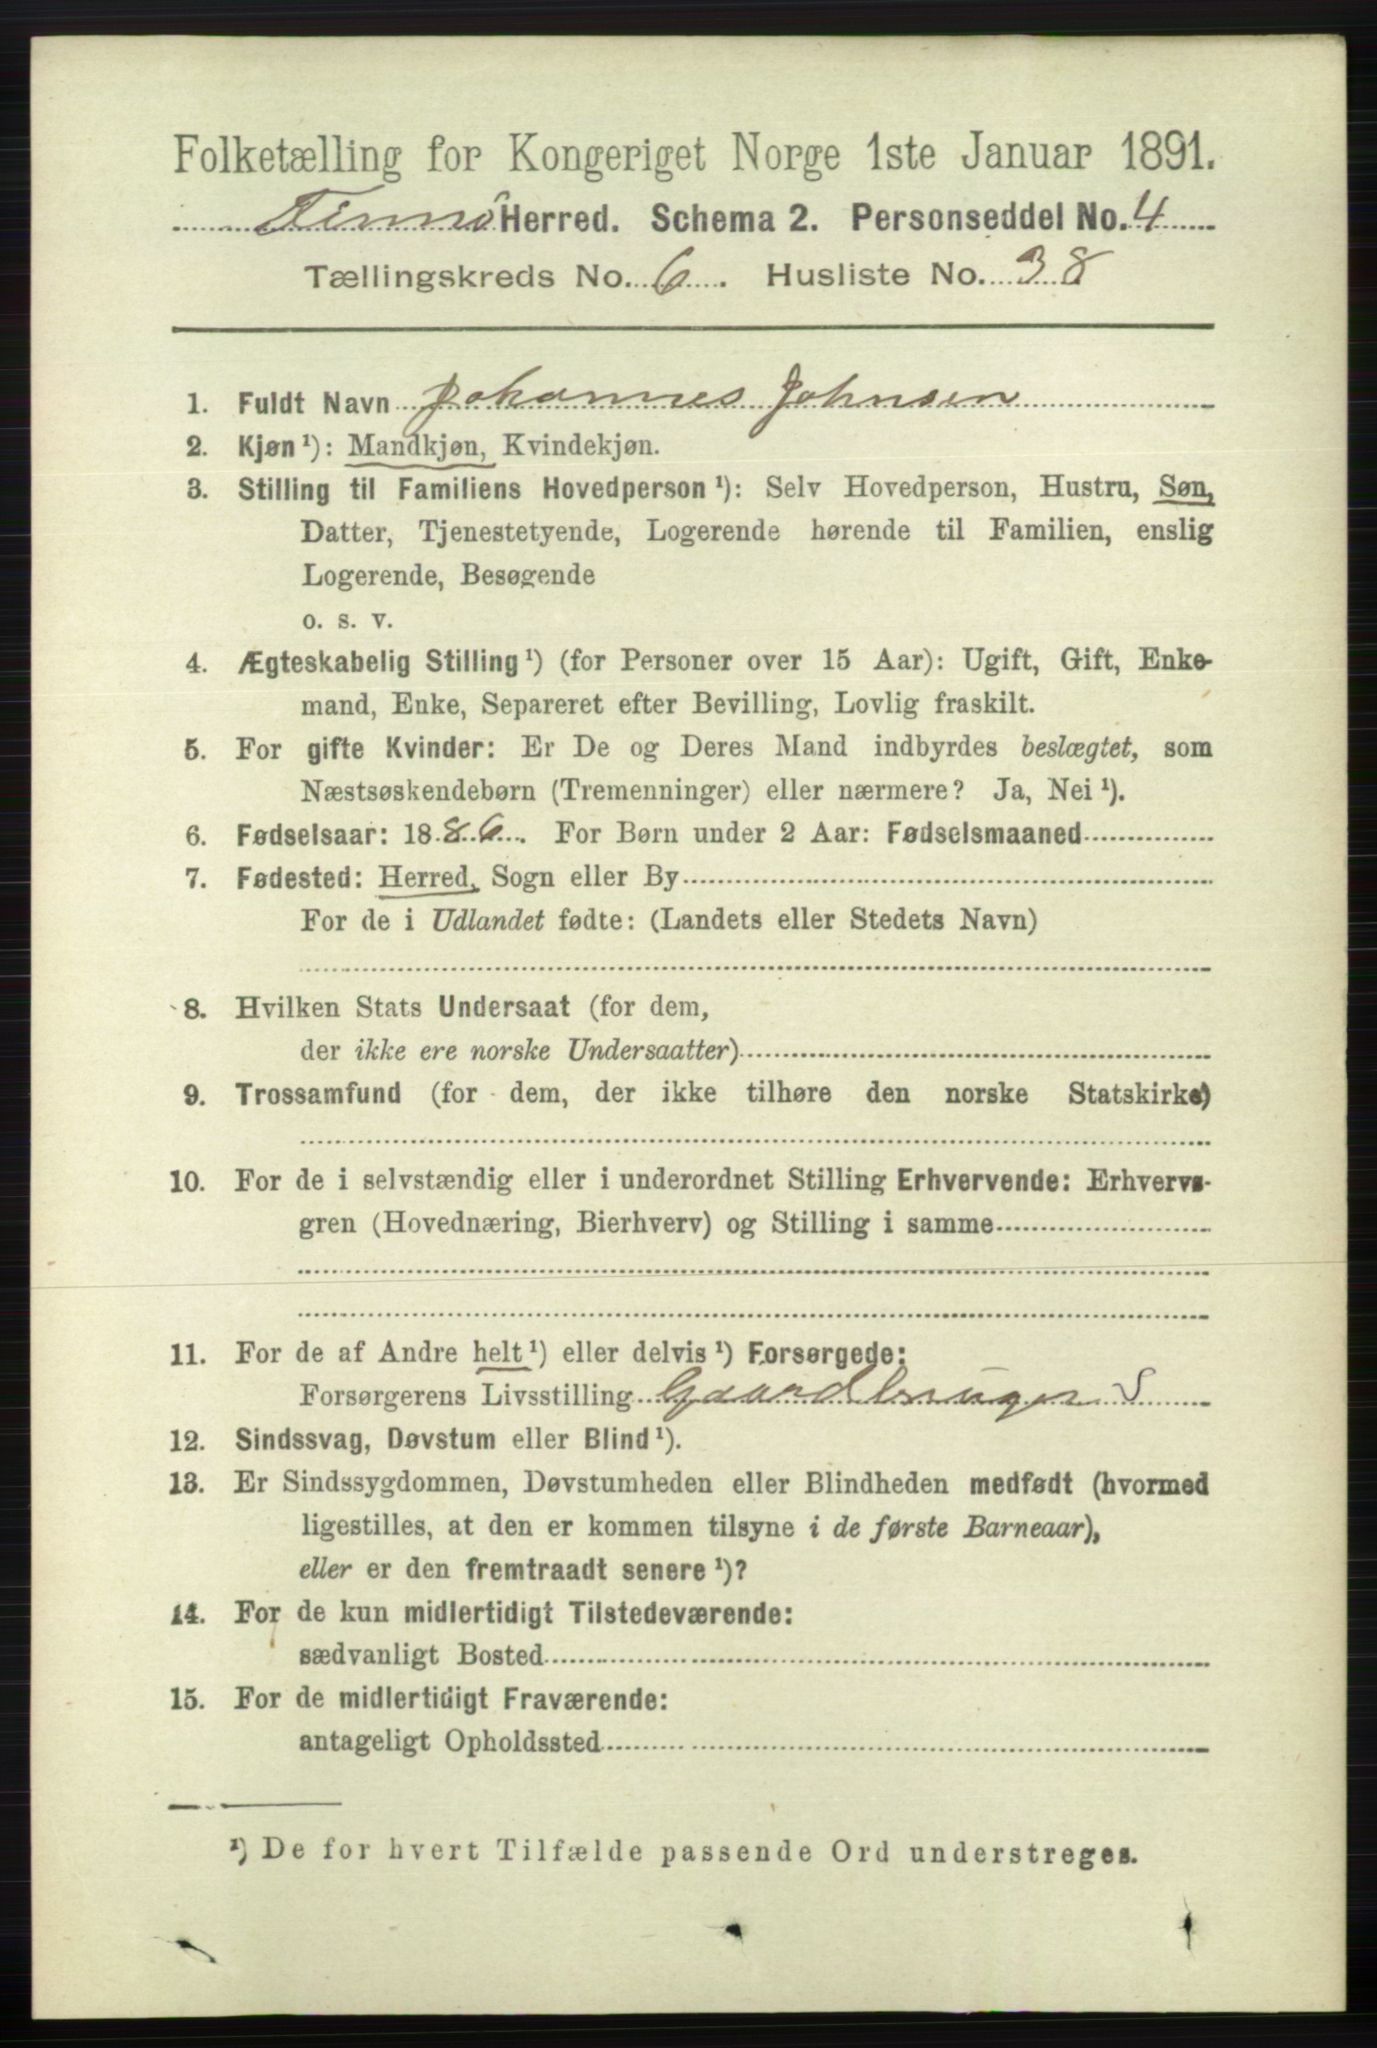 Folketælling for Kongeriget Norge 1ste Januar 1891.
Finnø Herred. Schema 2. Personseddel No. 4
Tællingskreds No. 6. Husliste No. 38
1. Fuldt Navn Johannes Johnsen
2. Kjøn ¹): Mandkjøn, Kvindekjøn.
3. Stilling til Familiens Hovedperson ¹): Selv Hovedperson, Hustru, Søn,
Datter, Tjenestetyende, Logerende hørende til Familien, enslig
Logerende, Besøgende
o. s. v.
4. Ægteskabelig Stilling ¹) (for Personer over 15 Aar): Ugift, Gift, Enke-
mand, Enke, Separeret efter Bevilling, Lovlig fraskilt.
5. For gifte Kvinder: Er De og Deres Mand indbyrdes beslægtet, som
Næstsøskendebørn (Tremenninger) eller nærmere? Ja, Nei ¹).
6. Fødselsaar: 1886. For Børn under 2 Aar: Fødselsmaaned
7. Fødested: Herred, Sogn eller By
For de i Udlandet fødte: (Landets eller Stedets Navn)
8. Hvilken Stats Undersaat (for dem,
der ikke ere norske Undersaatter)
9. Trossamfund (for dem, der ikke tilhøre den norske Statskirke)
10. For de i selvstændig eller i underordnet Stilling Erhvervende: Erhvervs-
gren (Hovednæring, Bierhverv) og Stilling i samme
11. For de af Andre helt ¹) eller delvis ¹) Forsørgede:
Forsørgerens Livsstilling Gaardbruger S
12. Sindssvag, Døvstum eller Blind ¹).
13. Er Sindssygdommen, Døvstumheden eller Blindheden medfødt (hvormed
ligestilles, at den er kommen tilsyne i de første Barneaar),
eller er den fremtraadt senere ¹)?
14. For de kun midlertidigt Tilstedeværende:
sædvanligt Bosted
15. For de midlertidigt Fraværende:
antageligt Opholdssted
¹) De for hvert Tilfælde passende Ord understreges.